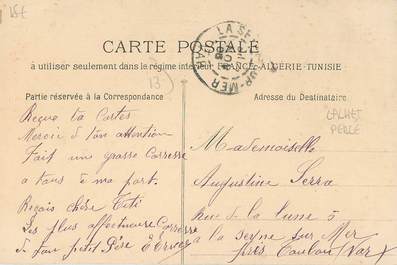 15€
CARTE POSTALE
à utiliser seulement dans le régime intérieur FRANCE-ALGÉRIE-TUNISIE
LA SEYNE-SUR-MER
VAR
13
Partie réservée à la Correspondance
Adresse du Destinataire
CACHET
PERLÉ
Reçue ta Cartes
Merci de ton attention
Fait un grosse Carresse
a tous de ma part.
Reçois chère Titi
Les plus affectueuse Carresse
de ton petit
Mademoiselle
Augustine Serra
Rue de la lune à
a la seyne sur Mer
près Toulon (Var)